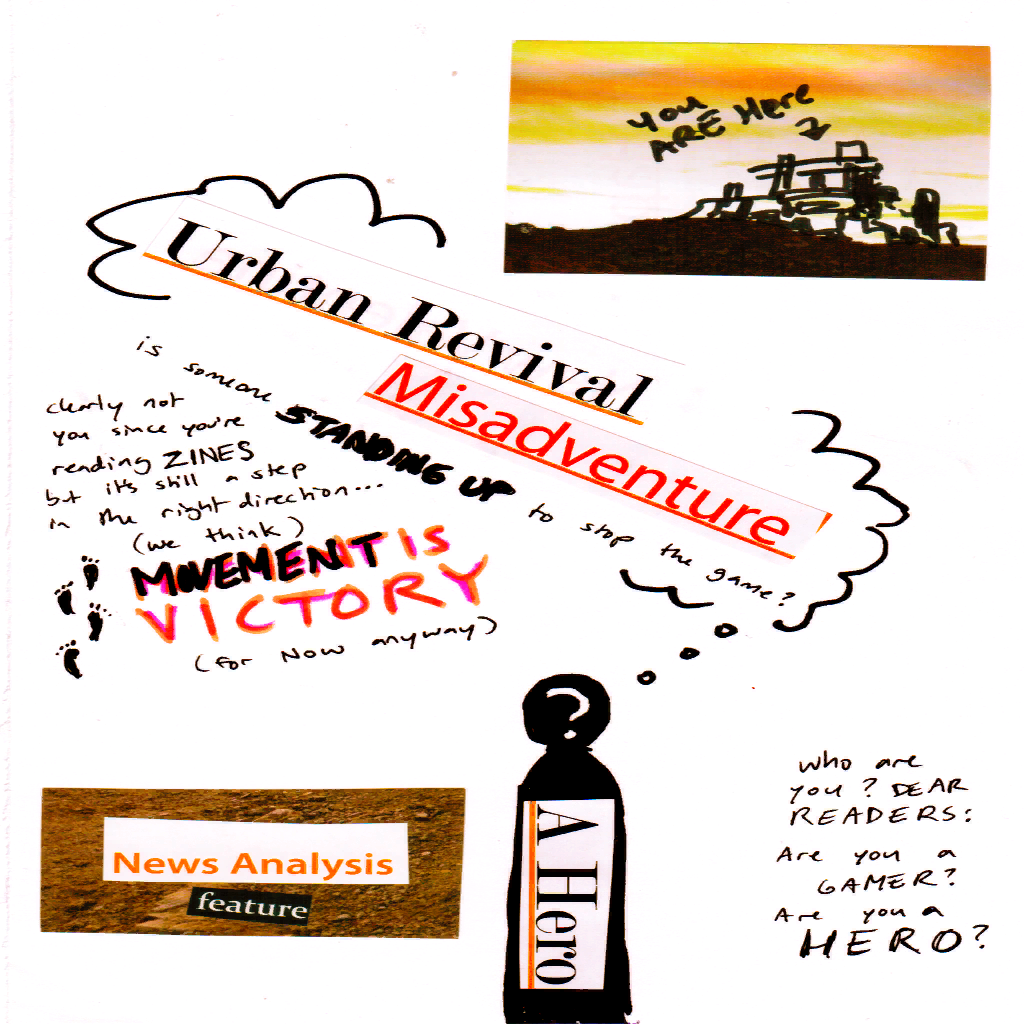 You
ARE Here
Urban Revival
Misadventure
is someone STANDING UP to stop the game?
clearly not
you since you're
reading ZINES
but it's still a step
in the right direction...
(we think)
MOVEMENT IS
VICTORY
(for Now anyway)
?
A Hero
News Analysis
feature
Who are
you? DEAR
READERS:
Are you a
GAMER?
Are you a
HERO?